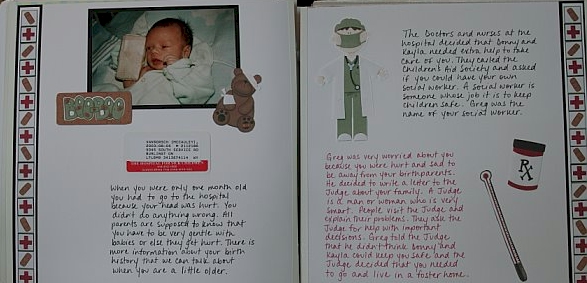 BOOBOO
When you were only one month old
you had to go to the hospital
because your head was hurt. You
didn't do anything wrong. All
parents are supposed to know that
you have to be very gentle with
babies or else they get hurt. There is
more information about your birth
history that we can talk about
when you are a little older.
The Doctors and nurses at the
hospital decided that Donny and
Kayla needed extra help to take
care of you. They called the
Children's Aid Society and asked
if you could have your own
Social worker. A social worker is
someone whose job it is to keep
children safe. Greg was the
name of your social worker.
Greg was very worried about you
because you were hurt and sad to
be away from your birthparents.
He decided to write a letter to the
Judge about your family. A Judge
is a man or woman who is very
smart. People visit the Judge and
explain their problems. They ask the
Judge for help with important
decisions. Greg told the Judge
that he didn't think Donny and
Kayla could keep you safe and the
Judge decided that you needed
to go and live in a foster home.
Rx